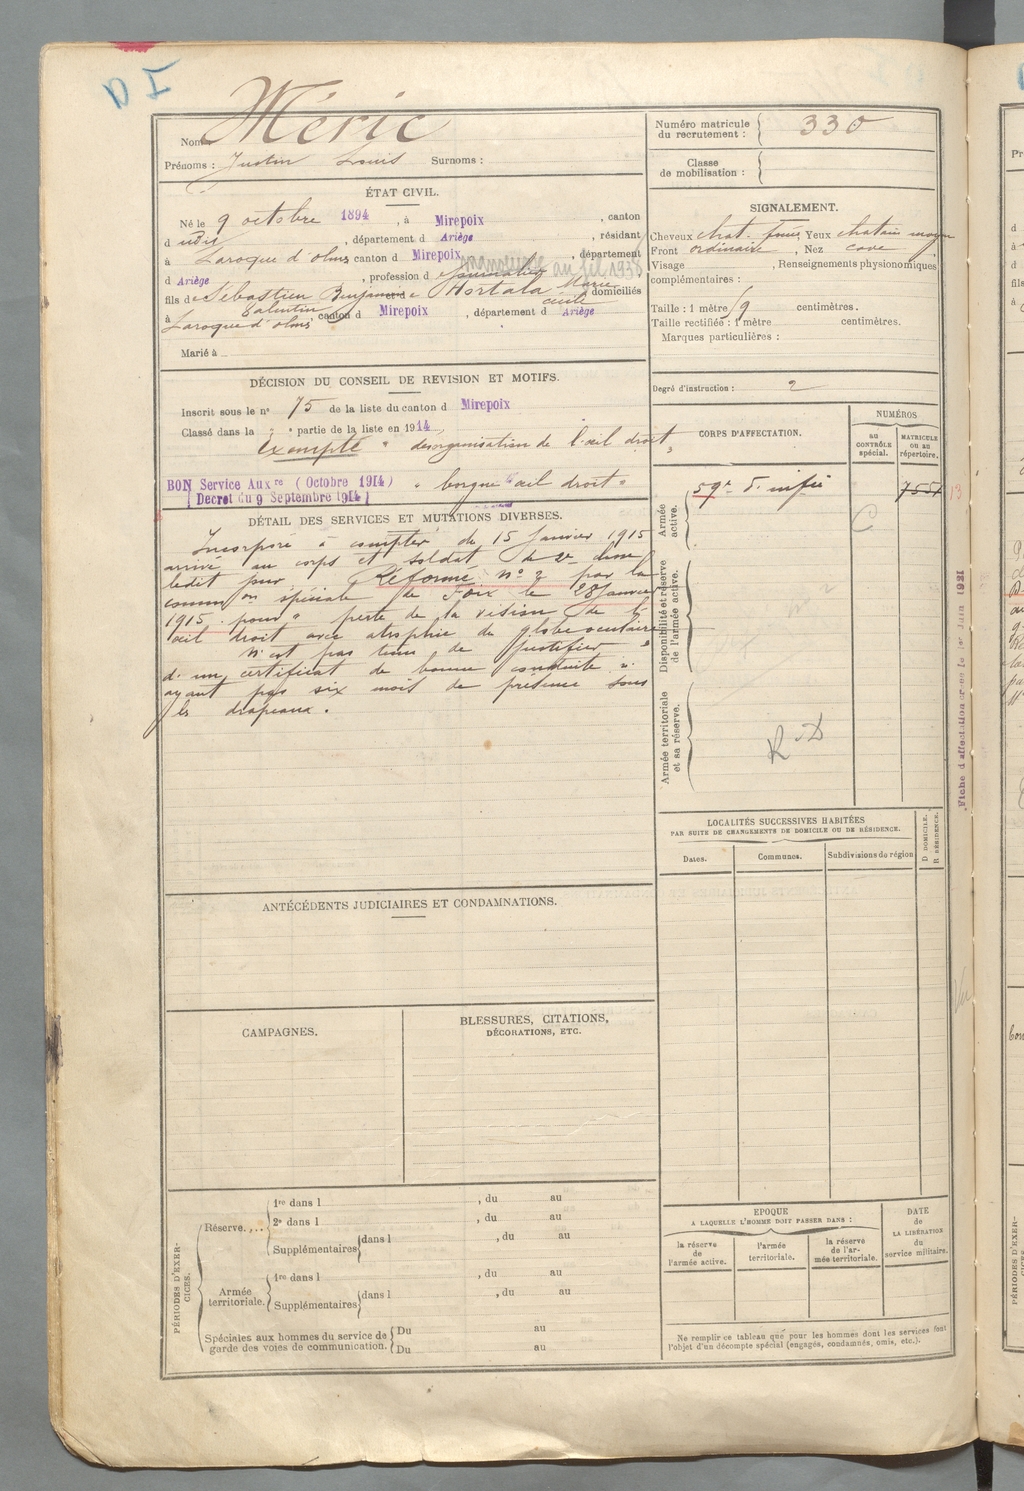 D I
Nom Méric
Prénoms : Justin Louis Surnoms :
Numéro matricule du recrutement : 330
Classe de mobilisation :
ÉTAT CIVIL.
Né le 9 octobre 1894, à Mirepoix, canton
d udit, département d Ariège, résidant
à Laroque d'olmes canton d Mirepoix, département
d Ariège, profession d journalier au fil, 1938
fils de Sébastien Benjamin et de Hortala Marie domiciliés
à Laroque d'olmes, canton d Mirepoix, département d Ariège
Marié à
SIGNALEMENT.
Cheveux chat. foncé Yeux chatain moyen
Front ordinaire, Nez cave
Visage , Renseignements physionomiques
complémentaires :
Taille : 1 mètre 59 centimètres.
Taille rectifiée : 1 mètre centimètres.
Marques particulières :
Degré d'instruction : 2
DÉCISION DU CONSEIL DE REVISION ET MOTIFS.
Inscrit sous le no 75 de la liste du canton d Mirepoix
Classé dans la partie de la liste en 1914
Exempté " desorganisation de l'œil droit "
BON Service Auxre (Octobre 1914) " borgne œil droit "
[Decret du 9 Septembre 1914]
DÉTAIL DES SERVICES ET MUTATIONS DIVERSES.
Incorporé à compter du 15 Janvier 1915
arrivé au corps et soldat de 2e classe
ledit jour. Réformé no 2 par la
common spéciale de Foix le 28 Janvier
1915 pour " perte de la vision de l'
œil droit avec atrophie du globe oculaire "
N'est pas tenu de justifier
d'un certificat de bonne conduite n'
ayant pas six mois de présence sous
les drapeaux.
CORPS D'AFFECTATION.
NUMÉROS
AU CONTRÔLE spécial.
MATRICULE OU AU répertoire.
Armée active.
59e d'infie
7551
13
C
Disponibilité et réserve de l'armée active.
Armée territoriale et sa réserve.
R D
Fiche d'affectation créée le 1er Juin 1921
LOCALITÉS SUCCESSIVES HABITÉES
PAR SUITE DE CHANGEMENTS DE DOMICILE OU DE RÉSIDENCE.
Dates.
Communes.
Subdivisions de région
D DOMICILE.
R RÉSIDENCE.
ANTÉCÉDENTS JUDICIAIRES ET CONDAMNATIONS.
CAMPAGNES.
BLESSURES, CITATIONS,
DÉCORATIONS, ETC.
PÉRIODES D'EXERCICES.
Réserve....
1re dans l , du au
2e dans l , du au
Supplémentaires dans l , du au
Armée territoriale.
1re dans l , du au
Supplémentaires dans l , du au
Spéciales aux hommes du service de
garde des voies de communication.
Du au
Du au
EPOQUE
A LAQUELLE L'HOMME DOIT PASSER DANS :
la réserve de l'armée active.
l'armée territoriale.
la réserve de l'armée territoriale.
DATE
de
LA LIBÉRATION
du
service militaire.
Ne remplir ce tableau que pour les hommes dont les services font
l'objet d'un décompte spécial (engagés, condamnés, omis, etc.).